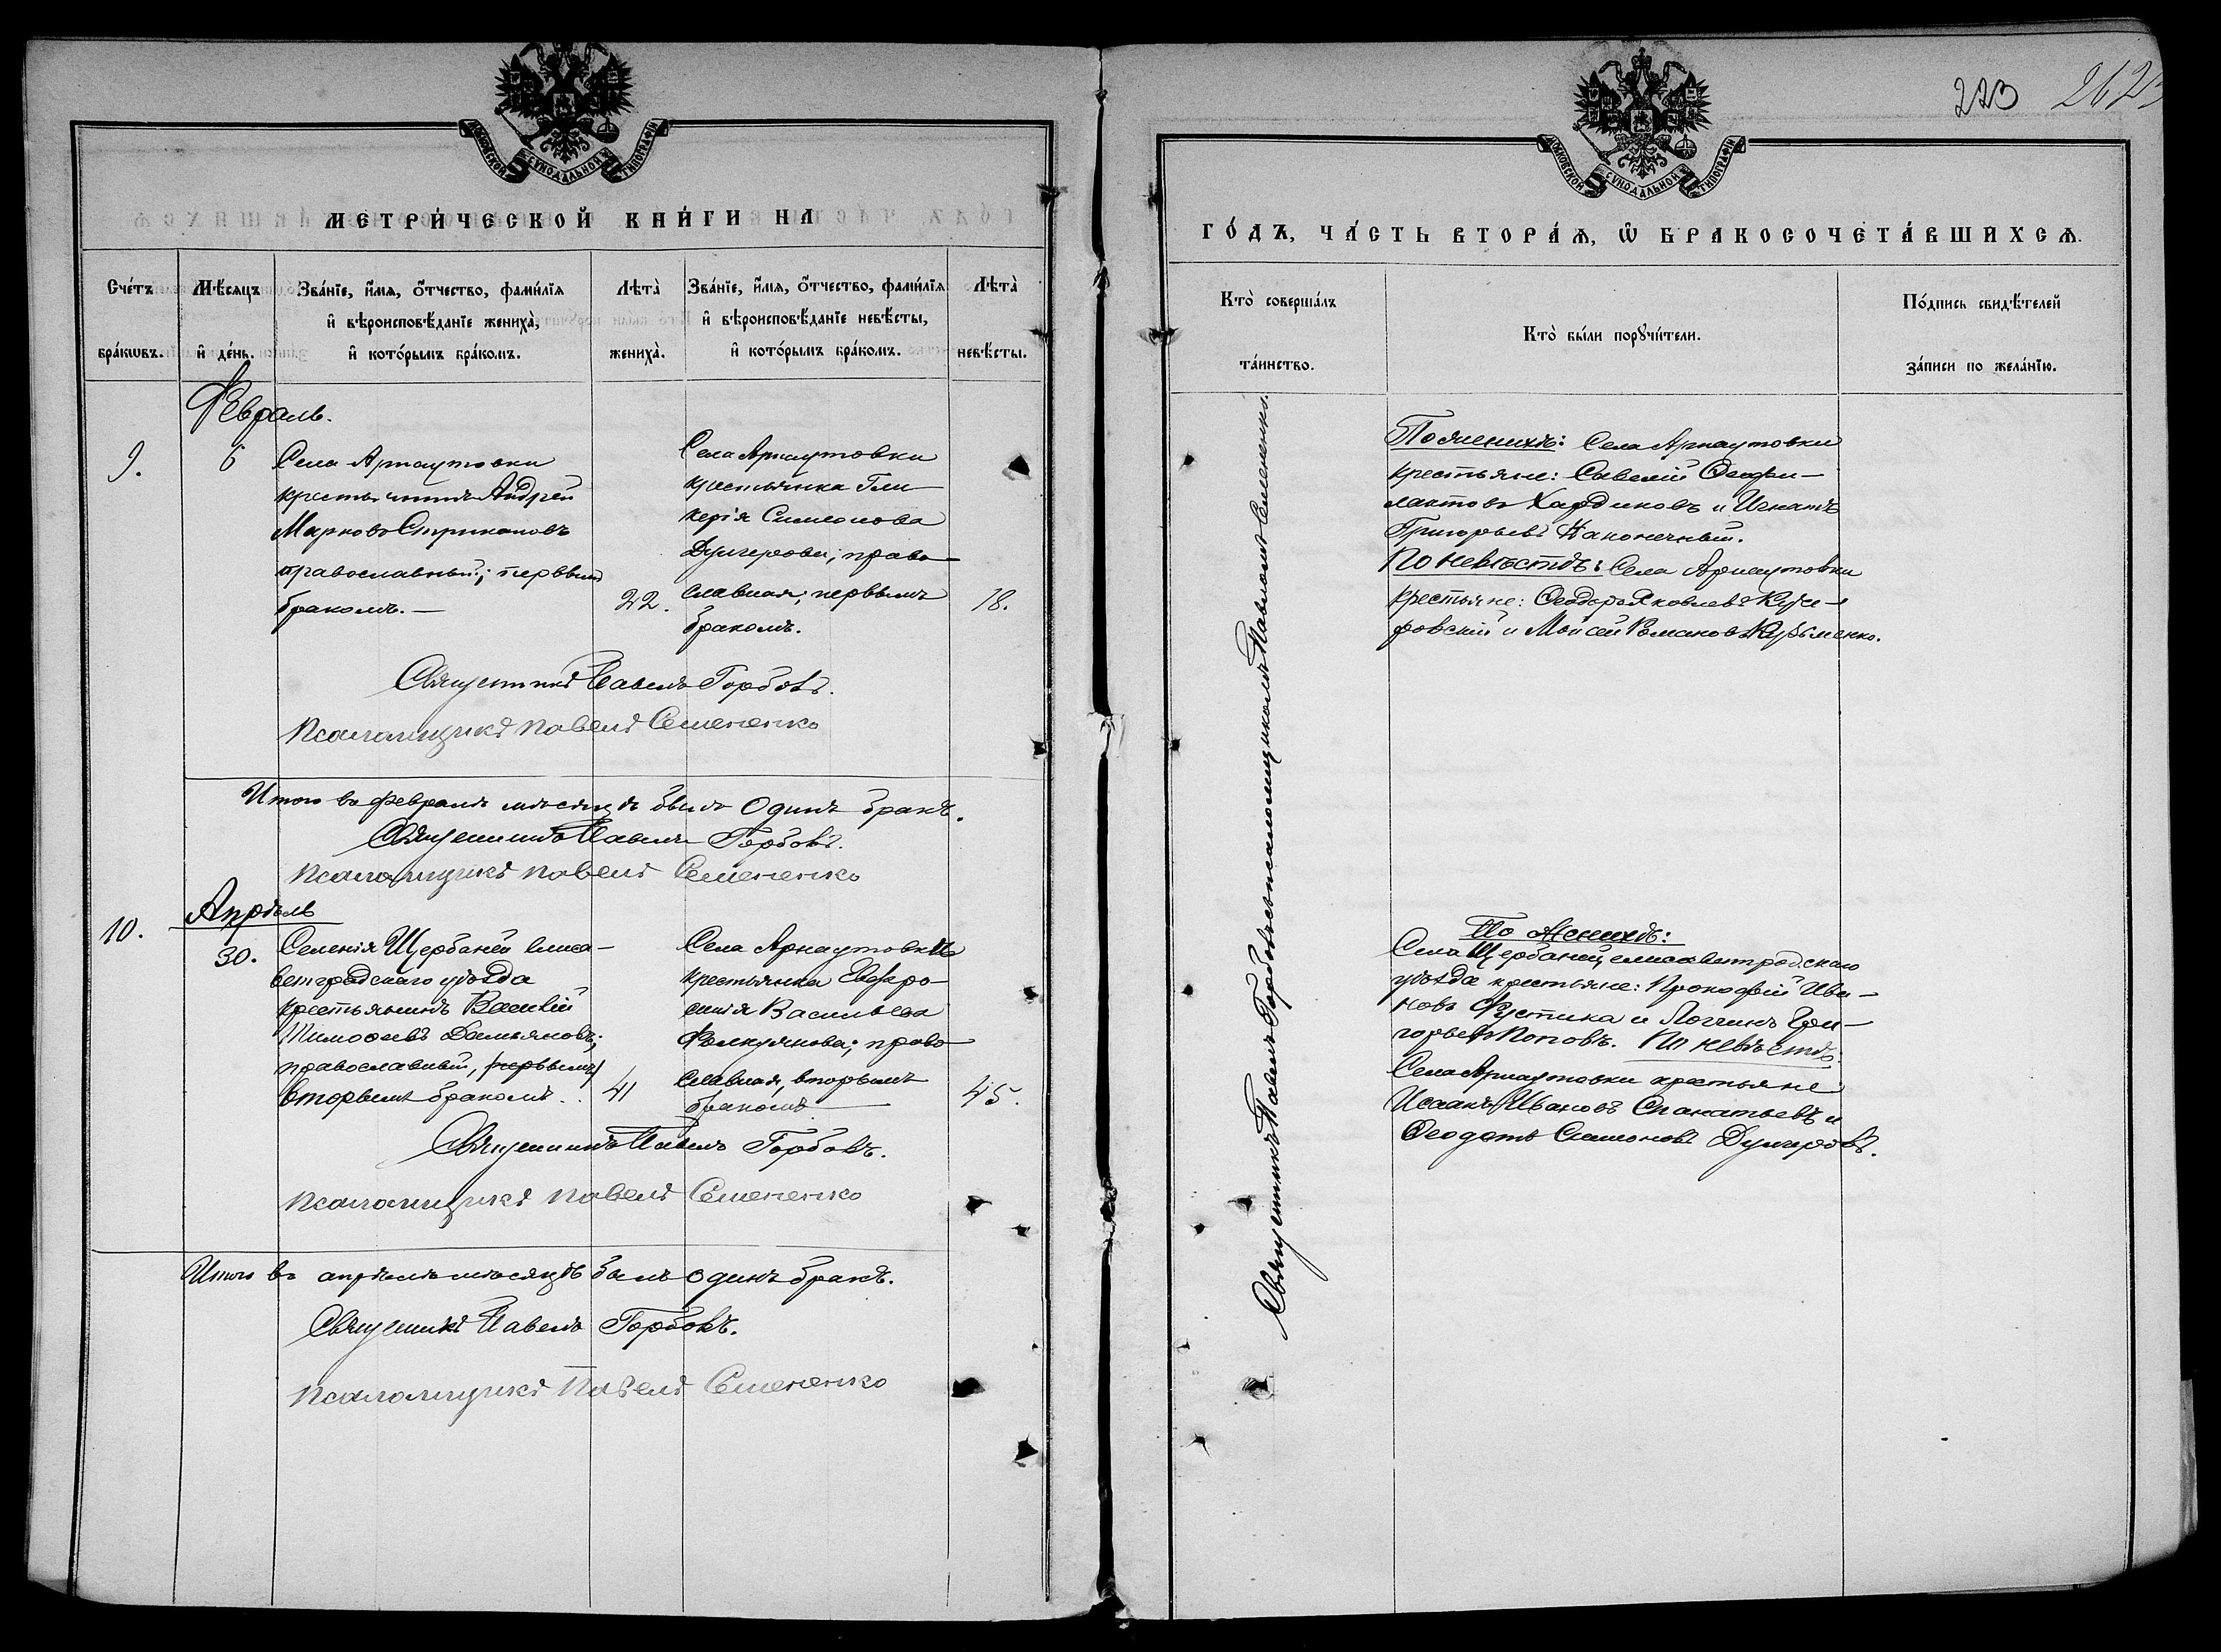 МОСКОВСКОЙ СѴНОДАЛЬНОЙ ТИПОГРАФІИ
МЕТРИ́ЧЕСКОЙ КНИ́ГИ НА
Счетъ браковъ.
Мѣсяцъ и день.
Званіе, имя, отчество, фамилія
и вѣроисповѣданіе жениха,
и которымъ бракомъ.
Лѣта жениха.
Званіе, имя, отчество, фамилія
и вѣроисповѣданіе невѣсты,
и которымъ бракомъ.
Лѣта невѣсты.
Февраль.
9.
6
Села Арнаутовки
крестьянинъ Андрей
Марковъ Стрикановъ
православный; первымъ
бракомъ. —
22.
Села Арнаутовки
крестьянка Гли-
керія Симеонова
Дулгерова; право-
славная; первымъ
бракомъ.
18.
Священникъ Павелъ Горбовъ.
Псаломщикъ Павелъ Семененко
Итого въ февралѣ мѣсяцѣ былъ Одинъ бракъ.
Священникъ Павелъ Горбовъ.
Псаломщикъ Павелъ Семененко
Апрѣль
10.
30.
Селенія Щербаней елиса-
ветградскаго уѣзда
крестьянинъ Василій
Тимофеевъ Дамьяновъ;
православный, (первымъ)
вторымъ бракомъ.
41
Села Арнаутовки
крестьянка Евфро-
синія Васильева
православная, вторымъ
бракомъ
45.
Священникъ Павелъ Горбовъ.
Псаломщикъ Павелъ Семененко
Итого въ апрѣлѣ мѣсяцѣ былъ одинъ бракъ.
Священникъ Павелъ Горбовъ.
Псаломщикъ Павелъ Семененко
223
МОСКОВСКОЙ СѴНОДАЛЬНОЙ ТИПОГРАФІИ
ГО́ДЪ, ЧА́СТЬ ВТОРА́Ѧ, Ѽ БРАКОСОЧЕТА́ВШИХСѦ.
Кто совершалъ таинство.
Кто были поручители.
Подпись свидѣтелей
записи по желанію.
Священникъ Павелъ Горбовъ съ псаломщикомъ Павломъ Семененко.
По женихѣ: Села Арнаутовки
крестьяне: Савелій Феофи-
лактовъ Хардиковъ и Игнатъ
Григорьевъ Наконечный.
По невѣстѣ: Села Арнаутовки
крестьяне: Феодоръ Яковлевъ
и Моисей Романовъ Кузьменко.
По женихѣ:
Села Щербаней, елисаветградскаго
уѣзда крестьяне: Прокофій Ива-
новъ Фустика и Логгинъ Гри-
горьевъ Поповъ. По невѣстѣ:
Села Арнаутовки крестьяне
Исаакъ Ивановъ и
Феодотъ Симоновъ Дулгеровъ.